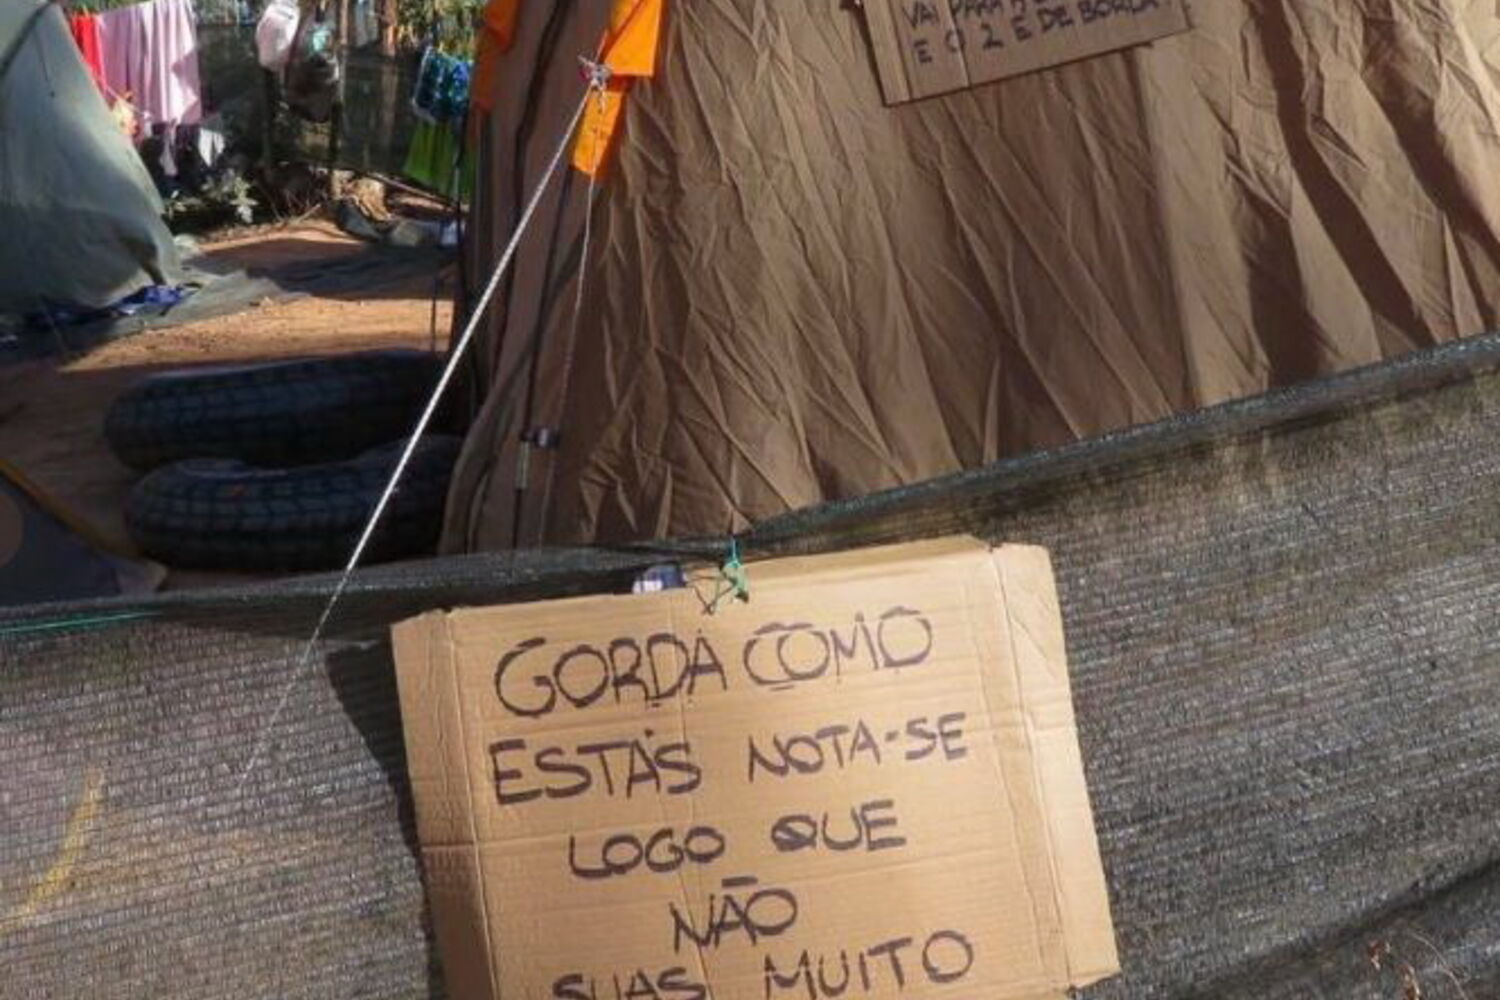 VAI PARA A
E O 2 E DE BORLA!
GORDA COMO
ESTÁS NOTA-SE
LOGO QUE
NÃO
SUAS MUITO